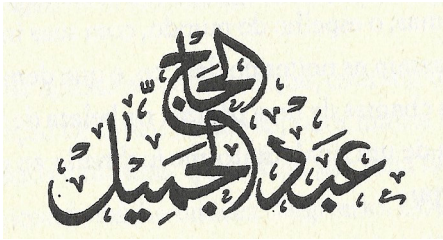 الحَاج
عَبَدْ الجَمِيْل